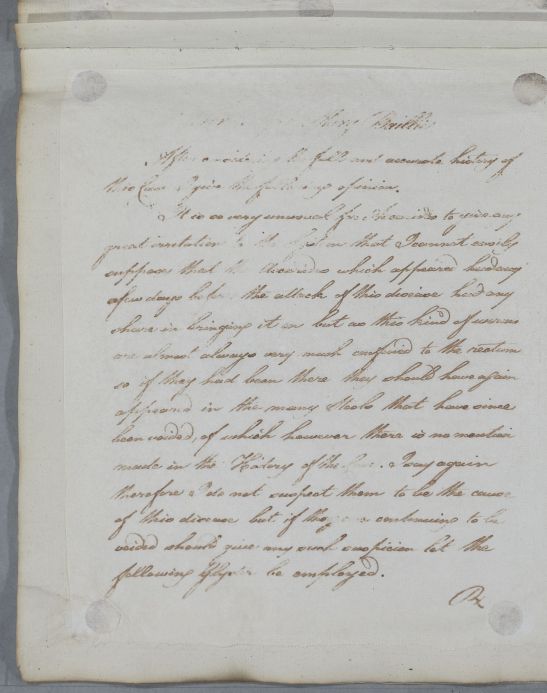 Mary Baillie
After considering the full and accurate history of
this Case I give the following opinion.
It is so very unusual for Ascarides to give any
great irritation to the System that I cannot easily
suppose that the Ascarides which appeared
a few days before the attack of this disease had any
share in bringing it on but as this kind of worms
are almost always very much confined to the rectum
so if they had been there they should have again
appeared in the many Stools that have since
been voided, of which however there is no mention
made in the History of the Case. I say again
therefore I do not suspect them to be the cause
of this disease but if their continuing to be
voided should give any such suspicion let the
following Glyster be employed.
℞